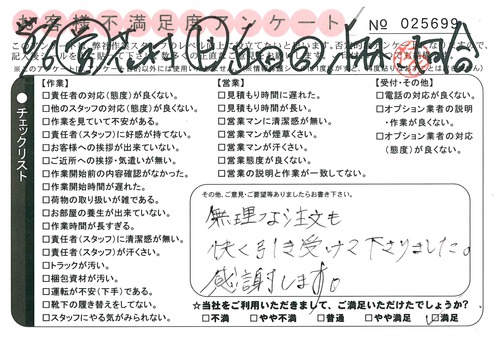 お客様不満足度アンケート
No 025699
チェックリスト
【作業】
□責任者の対応(態度)が良くない。
□他のスタッフの対応(態度)が良くない。
□作業を見ていて不安がある。
□責任者(スタッフ)に好感が持てない。
□お客様への挨拶が出来ていない。
□ご近所への挨拶・気遣いが無い。
□作業開始前の内容確認がなかった。
□作業開始時間が遅れた。
□荷物の取り扱いが雑である。
□お部屋の養生が出来ていない。
□作業時間が長すぎる。
□責任者(スタッフ)に清潔感が無い。
□責任者(スタッフ)が汗くさい。
□トラックが汚い。
□梱包資材が汚い。
□運転が不安(下手)である。
□靴下の履き替えをしてない。
□スタッフにやる気がみられない。
【営業】
□見積もり時間に遅れた。
□見積もり時間が長い。
□営業マンに清潔感が無い。
□営業マンが煙草くさい。
□営業マンが汗くさい。
□営業態度が良くない。
□営業の説明と作業が一致してない。
【受付・その他】
□電話の対応が良くない。
□オプション業者の説明
・作業が良くない。
□オプション業者の対応
(態度)が良くない。
その他、ご意見・ご要望等ありましたらお書き下さい。
無理な注文も
快く引き受けて下さりました。
感謝します。
☆当社をご利用いただきまして、ご満足いただけたでしょうか?
□不満 □やや不満 □普通 □やや満足 ☑満足